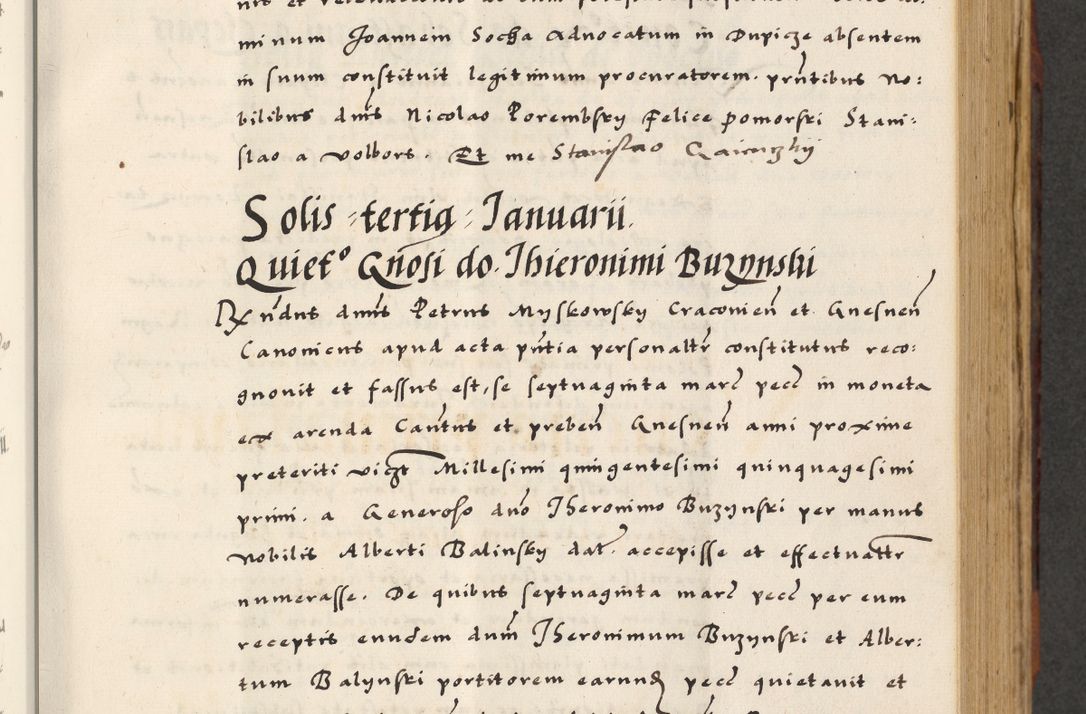 minum Joannem Socha Advocatum in Dupicze absentem
in suum constituit legitimum procuratorem. prntibus No:
bilibus dnis Nicolao Porembsky Felice Pomorski Stani:
slao a Volbors. Et me Stanislao
Solis tertia Januarii.
Quieto Gnosi do. Jhieronimi Buzynskii
Rxndus dnus Petrus Myskowsky Cracovien et Gnesnen
Canonicus apud acta pntia personaltr constitutus reco:
gnovit et fassus est, se septuaginta marc pecc in moneta
ex arenda Cantus et preben Gnesnen anni proxime
preteriti vigzt Millesimi quingentesimi quinquagesimi
primi. a Generoso dno Jheronimo Buzynski per manus
Nobilis Alberti Balinsky dat. accepisse et effectualtr
numerasse. De quibus septuaginta marc pecc per eum
receptis eundem dnum Jheronimum Buzynski et Alber:
tum Balynski portitorem earund pecc quietavit et